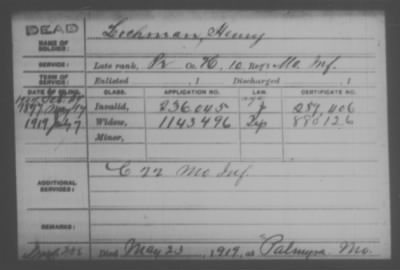 DEAD
NAME OF SOLDIER: Lochman, Henry
SERVICE: Late rank, Pr Co. K, 10 Reg't Mo. Inf.
TERM OF SERVICE: Enlisted , 1 Discharged , 1
DATE OF FILING. CLASS. APPLICATION NO. LAW. CERTIFICATE NO.
Invalid, 236045 289406
1919 Widow, 1143496 880126
Minor,
ADDITIONAL SERVICES: C 22 Mo Inf
REMARKS:
Died May 23, 1919, at Palmyra Mo.